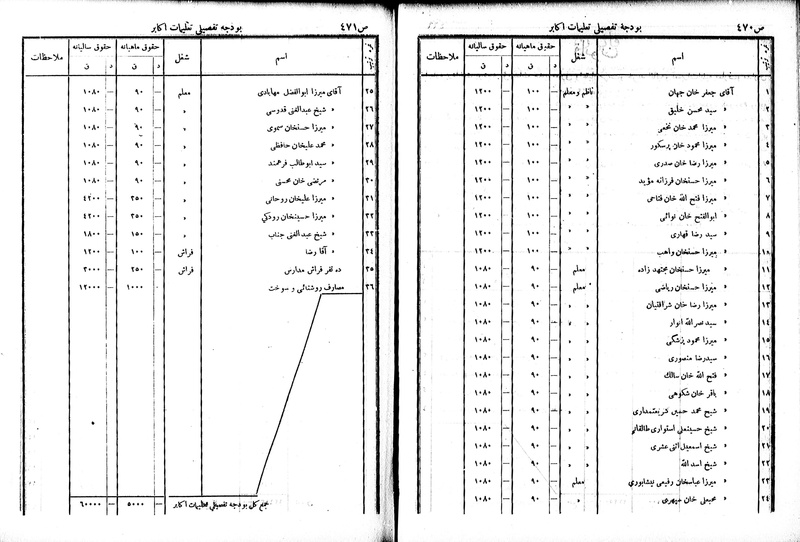 ص ۴۷۰ بودجهٔ تفصیلی تعلیمات اکابر
اسم شغل حقوق ماهیانه حقوق سالیانه ملاحظات
د ن د ن
۱ آقای جعفر خان جهان ناظم و معلم — ۱۰۰ — ۱۲۰۰
۲ » سید محسن خلیق » » — ۱۰۰ — ۱۲۰۰
۳ » میرزا محمد خان نخعی » » — ۱۰۰ — ۱۲۰۰
۴ » میرزا محمود خان پرسکور » » — ۱۰۰ — ۱۲۰۰
۵ » میرزا رضا خان صدری » » — ۱۰۰ — ۱۲۰۰
۶ » میرزا حسنخان فرزانه مؤید » » — ۱۰۰ — ۱۲۰۰
۷ » میرزا فتح الله خان فتاحی » » — ۱۰۰ — ۱۲۰۰
۸ » ابوالفتح خان نوائی » » — ۱۰۰ — ۱۲۰۰
۹ » سید رضا قهاری » » — ۱۰۰ — ۱۲۰۰
۱۰ » میرزا حسنخان واهب » » — ۱۰۰ — ۱۲۰۰
۱۱ » میرزا حسنخان مجتهد زاده معلم — ۹۰ — ۱۰۸۰
۱۲ » میرزا حسنخان ریاضی معلم — ۹۰ — ۱۰۸۰
۱۳ » میرزا رضا خان شرافتیان » » — ۹۰ — ۱۰۸۰
۱۴ » سید نصرالله انوار » » — ۹۰ — ۱۰۸۰
۱۵ » میرزا محمود پزشکی » » — ۹۰ — ۱۰۸۰
۱۶ » سیدرضا منصوری » » — ۹۰ — ۱۰۸۰
۱۷ » فتح الله خان سالك » » — ۹۰ — ۱۰۸۰
۱۸ » باقر خان شکوهی » » — ۹۰ — ۱۰۸۰
۱۹ » شیخ محمد حسین شریعتمداری » » — ۹۰ — ۱۰۸۰
۲۰ » شیخ حسینعلی استواری طالقانی » » — ۹۰ — ۱۰۸۰
۲۱ » شیخ اسمعیل اثنی عشری » » — ۹۰ — ۱۰۸۰
۲۲ » شیخ اسد الله » » — ۹۰ — ۱۰۸۰
۲۳ » میرزا عباسخان رفیعی نیشابوری معلم — ۹۰ — ۱۰۸۰
۲۴ » محبعلی خان سپهری » — ۹۰ — ۱۰۸۰
ص ۴۷۱ بودجه تفصیلی تعلیمات اکابر
اسم شغل حقوق ماهیانه حقوق سالیانه ملاحظات
د ن د ن
۲۵ آقای میرزا ابوالفضل مهابادی معلم — ۹۰ — ۱۰۸۰
۲۶ » شیخ عبدالغنی قدرسی » — ۹۰ — ۱۰۸۰
۲۷ » میرزا حسنخان سموی » — ۹۰ — ۱۰۸۰
۲۸ » محمد علیخان حافظی » — ۹۰ — ۱۰۸۰
۲۹ » سید ابوطالب فرهمند » — ۹۰ — ۱۰۸۰
۳۰ » مرتضی خان محسنی » — ۹۰ — ۱۰۸۰
۳۱ » میرزا علیخان روحانی » — ۳۵۰ — ۴۲۰۰
۳۲ » میرزا حسینخان رودکی » — ۳۵۰ — ۴۲۰۰
۳۳ » شیخ عبدالغنی جناب » — ۱۵۰ — ۱۸۰۰
۳۴ » آقا رضا فراش — ۱۰۰ — ۱۲۰۰
۳۵ ده نفر فراش مدارس فراش — ۲۵۰ — ۳۰۰۰
۳۶ مصارف روشنائی و سوخت — ۱۰۰۰ — ۱۲۰۰۰
جمع کل بودجه تفصیلی تعلیمات اکابر — ۵۰۰۰ — ۶۰۰۰۰